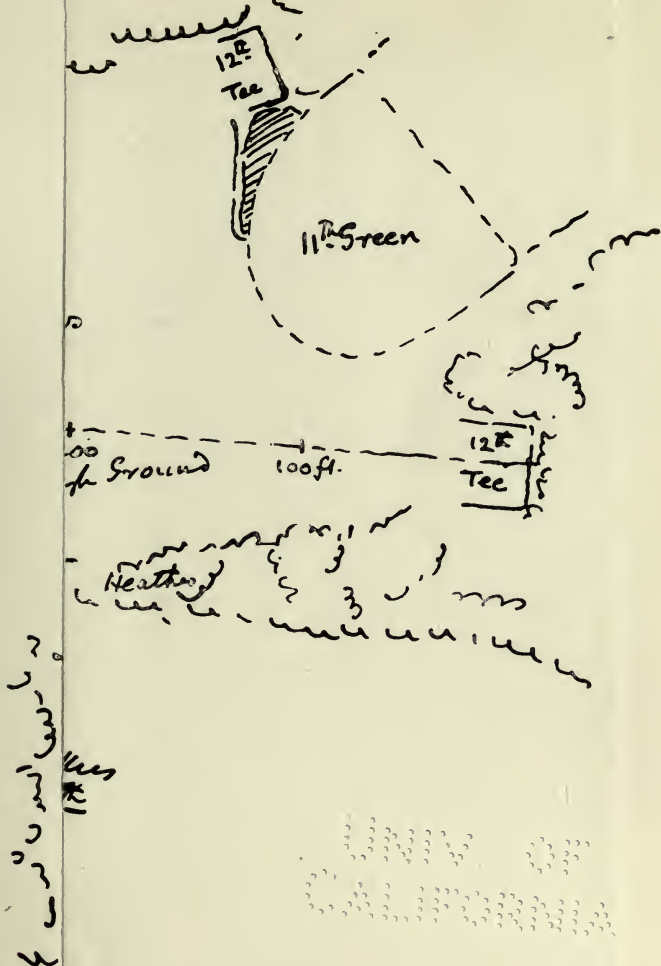 12th
Tee
11th Green
12th
Tee
00
Ground
100 ft.
Heather
UNIV. OF
CALIFORNIA